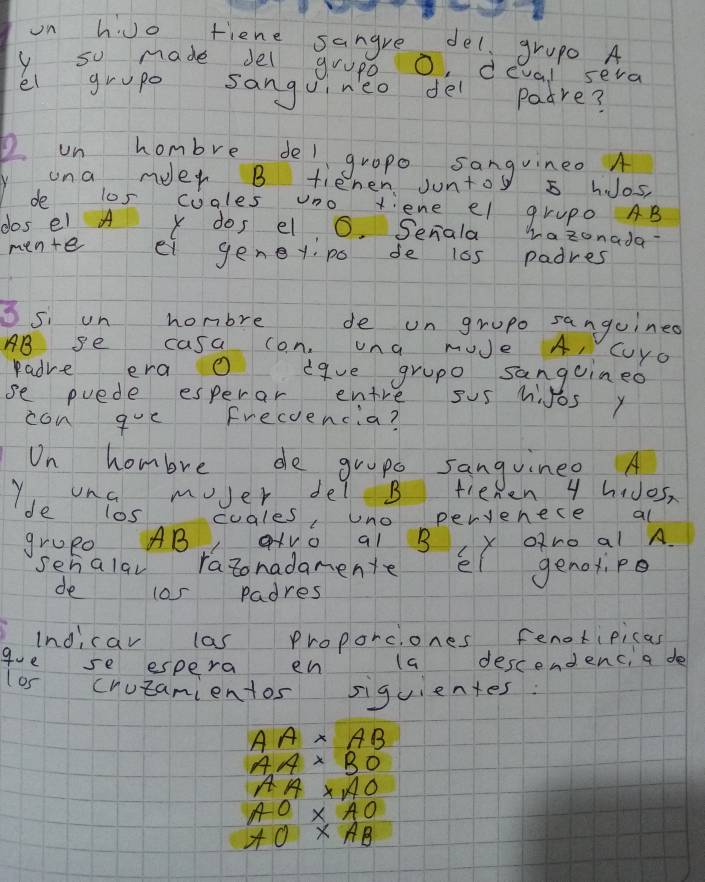 1 un hijo tiene sangre del grupo A
y su made del grupo O, ¿cual sera
el grupo sanguineo del padre?
2 un hombre del grupo sanguineo A
y una mujer B tienen juntos 5 hijos,
de los cuales uno tiene el grupo AB
dos el A y dos el O. Señala razonada-
mente el genotipo de los padres
3 si un hombre de un grupo sanguineo
AB se casa con una muje A, cuyo
padre era O ¿que grupo sanguineo
se puede esperar entre sus hijos y
con que frecuencia?
Un hombre de grupo sanguineo A
y una mujer del B tienen 4 hijos,
de los cuales, uno pertenece al
grupo AB, otro al B, y otro al A.
señalar razonadamente el genotipo
de los padres
5 Indicar las proporciones fenotipicas
que se espera en la descendencia de
los cruzamientos siguientes:
AA x AB
AA x BO
AA x AO
AO x AO
AO x AB